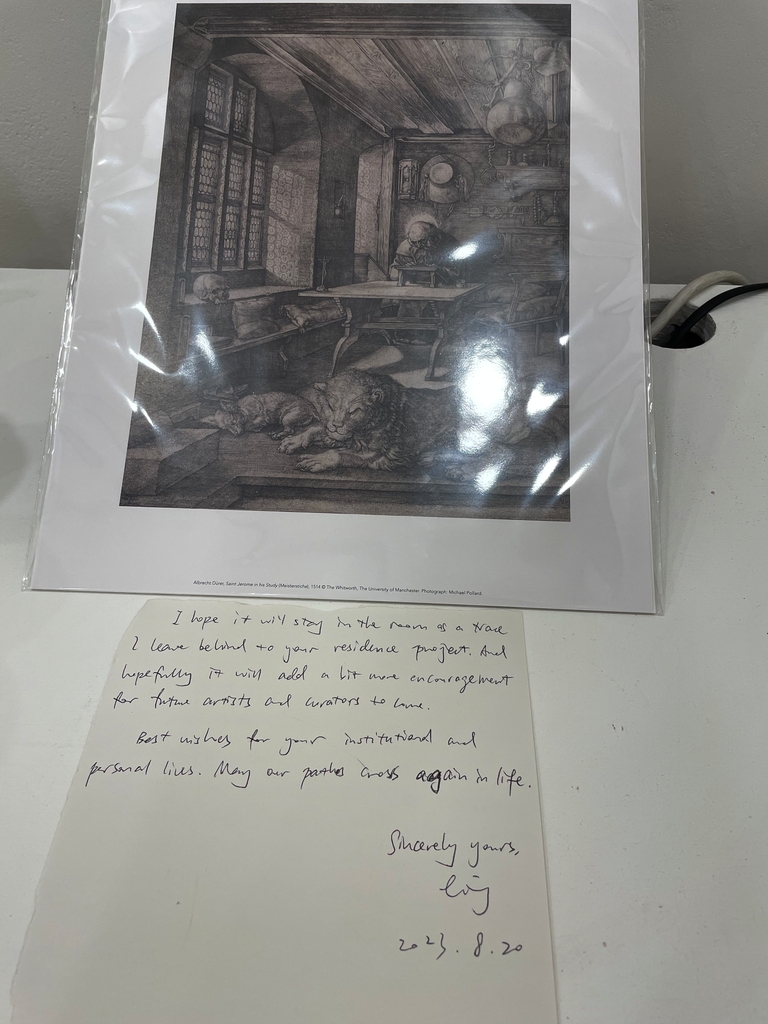 Albrecht Dürer, Saint Jerome in his Study (Meisterstiche), 1514 © The Whitworth, The University of Manchester. Photograph: Michael Pollard
I hope it will stay in the room as a trace
I leave behind to your residence project. And
hopefully it will add a bit more encouragement
for future artists and curators to come.
Best wishes for your institutional and
personal lives. May our paths cross again in life.
Sincerely yours,
2023.8.20